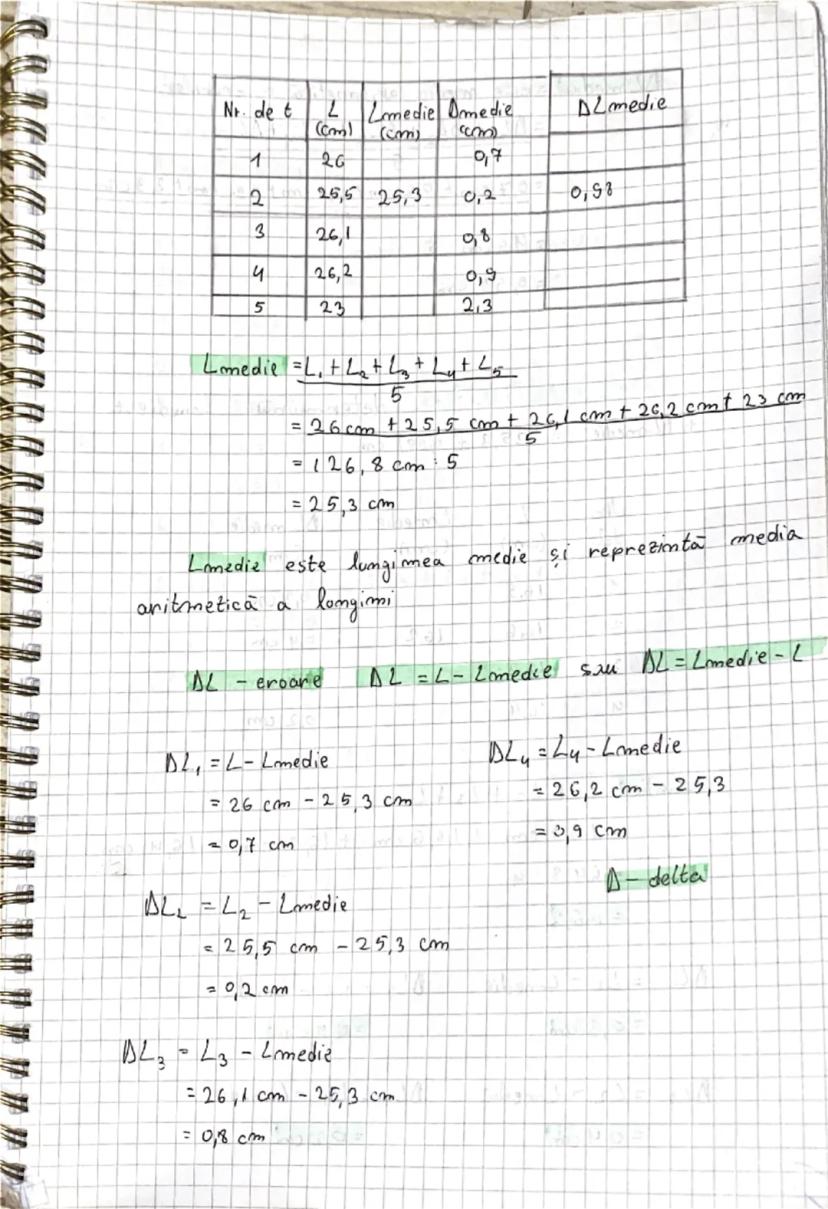 Nr. de t L (cm) Lmedie (cm) Dmedie (cm) DLmedie
1 26 0,7
2 25,5 25,3 0,2 0,98
3 26,1 0,8
4 26,2 0,9
5 23 2,3
Lmedie = L₁ + L₂ + L₃ + L₄ + L₅
5
= 26 cm + 25,5 cm + 26,1 cm + 26,2 cm + 23 cm
5
= 126,8 cm : 5
= 25,3 cm
Lmedie este lungimea medie și reprezintă media
aritmetică a longimi
ΔL - eroare ΔL = L - Lmedie sau ΔL = Lmedie - L
ΔL₁ = L - Lmedie
= 26 cm - 25,3 cm
= 0,7 cm
ΔL₄ = L₄ - Lmedie
= 26,2 cm - 25,3
= 0,9 cm
Δ - delta
ΔL₂ = L₂ - Lmedie
= 25,5 cm - 25,3 cm
= 0,2 cm
ΔL₃ = L₃ - Lmedie
= 26,1 cm - 25,3 cm
= 0,8 cm